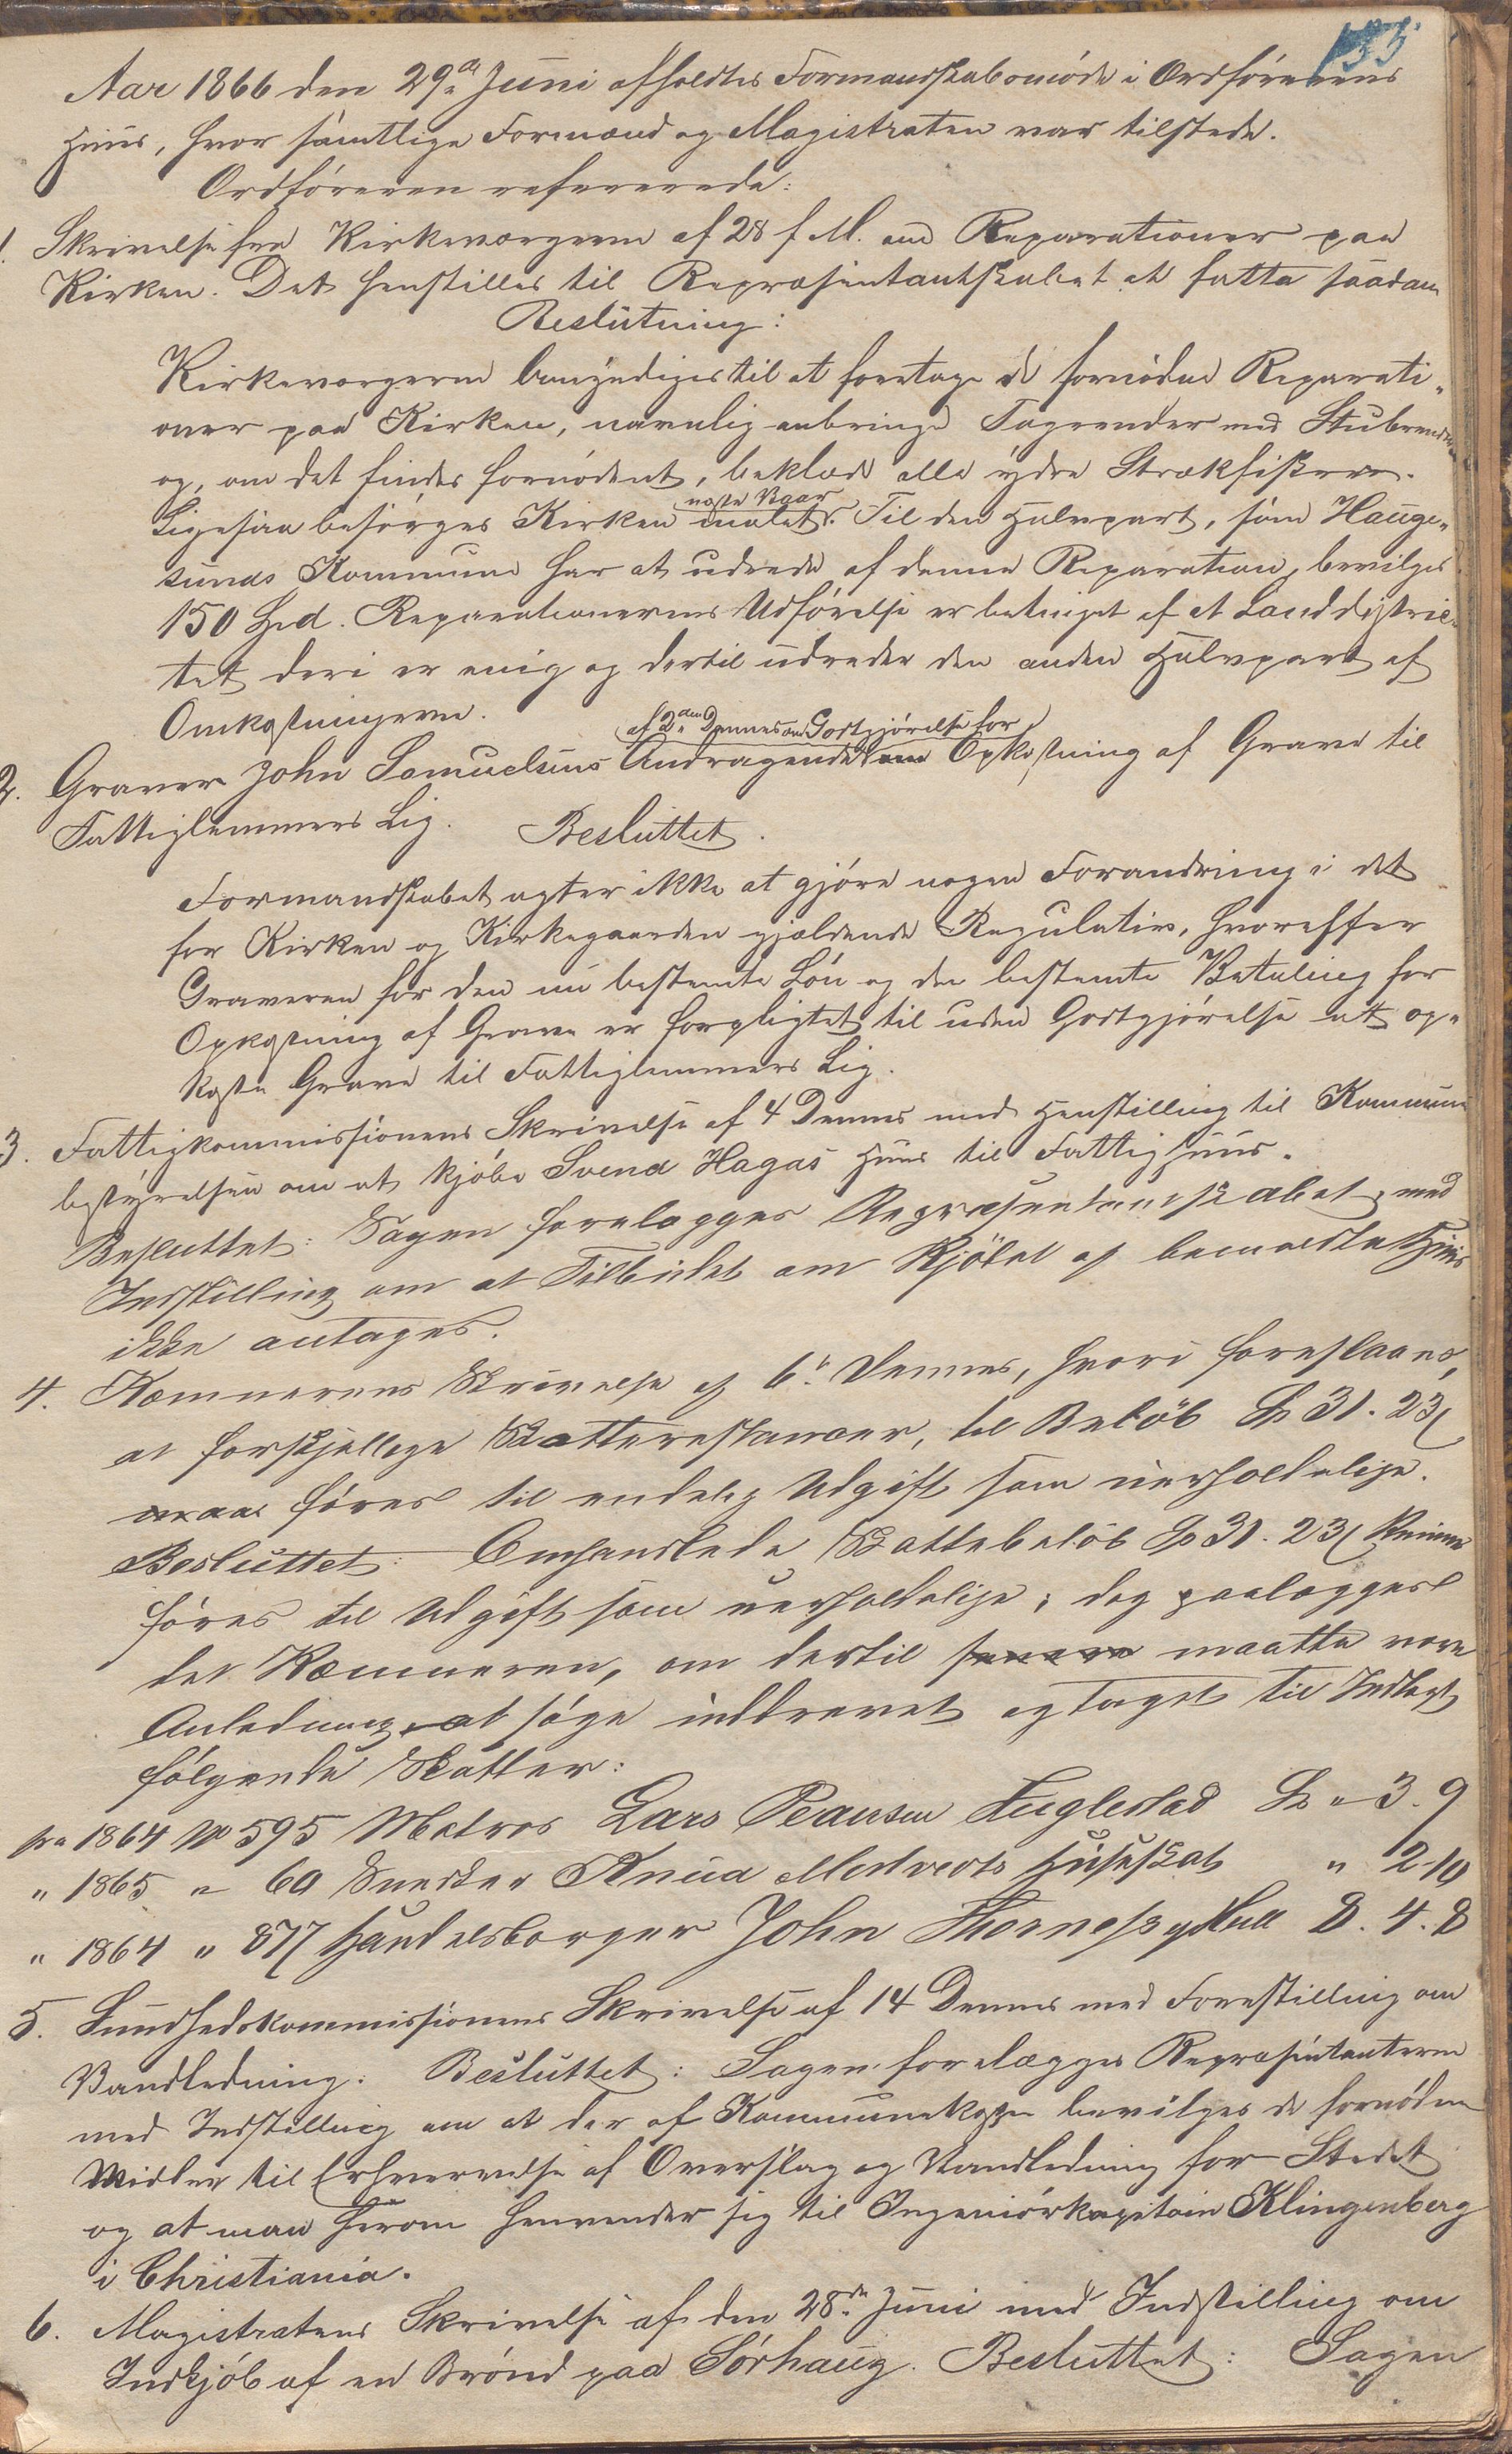 135
Aar 1866 den 29de Juni afholdtes Formandskabsmøde i Ordførerens
Huus, hvor samtlige Formænd og Magistraten var tilstede.
Ordføreren refererede:
1. Skrivelse fra Kirkeværgerne af 28 f M. om Reparationer paa
Kirken. Det henstilles til Repræsentantskabet at fatte saadan
Beslutning:
Kirkeværgerne bemyndiges til at foretage de fornødne Reparati„
oner paa Kirken, navnlig anbringe Tagrender med Stubrender
og, om det findes fornødent, beklæde alle ydre Strækfiskere.
Ligesaa besørges Kirken næste Vaar malet. Til den Halvpart, som Hauge„
sunds Kommune har at udrede af denne Reparation, bevilges
150 Spd. Reparationernes Udførelse er betinget af at Landdistric„
tet deri er enig og dertil udreder den anden Halvpart af
Omkostningerne.
2. Graver John Samuelsens Andragende af 2den Dennes om Godtgjørelse for Opkastning af Grave til
Fattiglemmers Lig. Besluttet.
Formandskabet agter ikke at gjøre nogen Forandring i det
for Kirken og Kirkegaarden gjældende Regulativ, hvorefter
Graveren for den nu bestemte Løn og den bestemte Betaling for
Opkastning af Grave er forpligtet til uden Godtgjørelse at op„
kaste Grave til Fattiglemmers Lig.
3. Fattigkommissionens Skrivelse af 4 Dennes med Henstilling til Kommune
bestyrelsen om at kjøbe Svend Hagas Huus til Fattighuus.
Besluttet: Sagen forelægges Repræsentantskabet med
Indstilling om at Tilbudet om Kjøbet af bemeldte Huus
ikke antages.
4. Kæmnerens Skrivelse af 6te Dennes, hvori foreslaaes,
at forskjellige Skatterestancer, til Beløb Sp 31. 23ß
maa føres til endelig Udgift som uerholdelige.
Besluttet: Omhandlede Skattebeløb Sp 31. 23ß kunne
føres til Udgift som uerholdelige; dog paalægges
det Kæmneren, om dertil senere maatte være
Anledning, at søge inddrevet og taget til Indtægt
følgende Skatter:
fra 1864 No 595 Matros Lars Peansen Fuglestad Sp „ 3. 9
„ 1865 „ 60 Snedker Knud Medvedts Huusskat „ 2. 10
„ 1864 „ 877 Handelsborger John Thorness 8. 4. 8
5. Sundhedskommissionens Skrivelse af 14 Dennes med Forestilling om
Vandledning. Besluttet: Sagen forelægges Repræsentanterne
med Indstilling om at der af Kommunekassen bevilges de fornødne
Midler til Erhvervelse af Overslag og Vandledning for Stedet
og at man herom henvender sig til Ingeniørkapitain Klingenberg
i Christiania.
6. Magistratens Skrivelse af den 28de Juni med Indstilling om
Indkjøb af en Brønd paa Sørhaug. Besluttet: Sagen